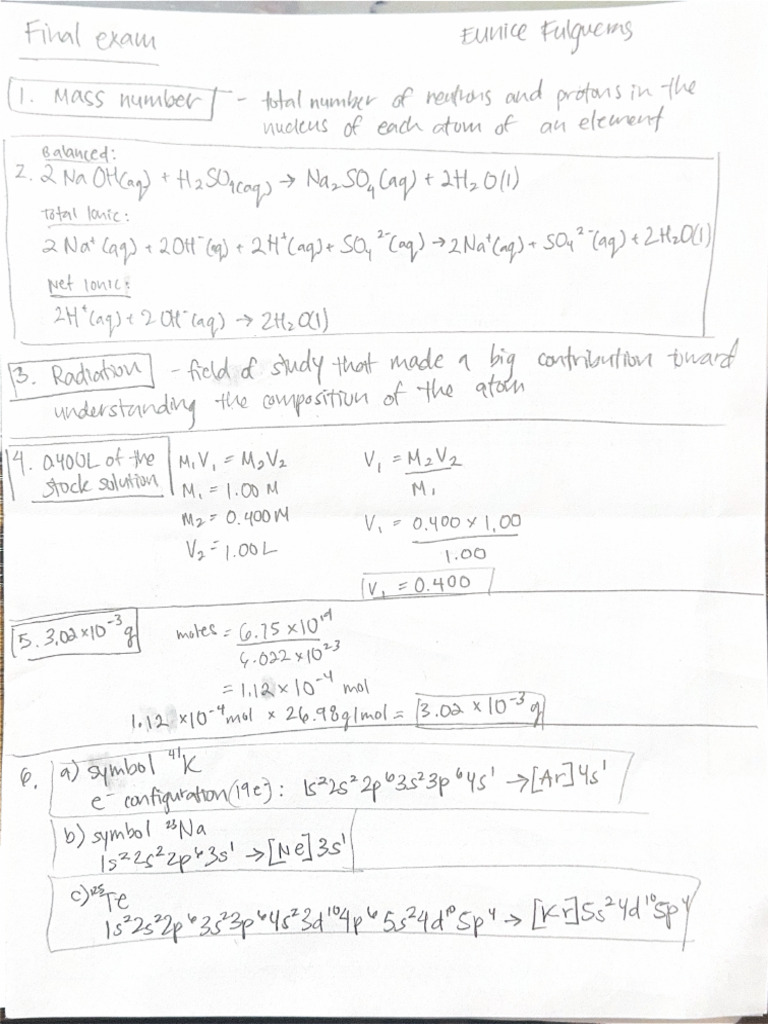 Final exam
Eunice Fulgueras
1. Mass number - total number of neutrons and protons in the
nucleus of each atom of an element
Balanced:
2. 2 NaOH(aq) + H₂SO₄(aq) → Na₂SO₄(aq) + 2H₂O(l)
Total Ionic:
2 Na⁺(aq) + 2OH⁻(aq) + 2H⁺(aq) + SO₄²⁻(aq) → 2Na⁺(aq) + SO₄²⁻(aq) + 2H₂O(l)
Net Ionic:
2H⁺(aq) + 2OH⁻(aq) → 2H₂O(l)
3. Radiation - field of study that made a big contribution toward
understanding the composition of the atom
4. 0.400L of the
stock solution
M₁V₁ = M₂V₂
M₁ = 1.00 M
M₂ = 0.400 M
V₂ = 1.00 L
V₁ = M₂V₂
M₁
V₁ = 0.400 × 1.00
1.00
V₁ = 0.400
5. 3.02×10⁻³ g
moles = 6.75 × 10¹⁹
6.022 × 10²³
= 1.12 × 10⁻⁴ mol
1.12 × 10⁻⁴ mol × 26.98g/mol = 3.02 × 10⁻³ g
6. a) symbol ⁴¹K
e⁻ configuration (19e): 1s²2s²2p⁶3s²3p⁶4s¹ → [Ar]4s¹
b) symbol ²³Na
1s²2s²2p⁶3s¹ → [Ne]3s¹
c) ¹²⁵Te
1s²2s²2p⁶3s²3p⁶4s²3d¹⁰4p⁶5s²4d¹⁰5p⁴ → [Kr]5s²4d¹⁰5p⁴